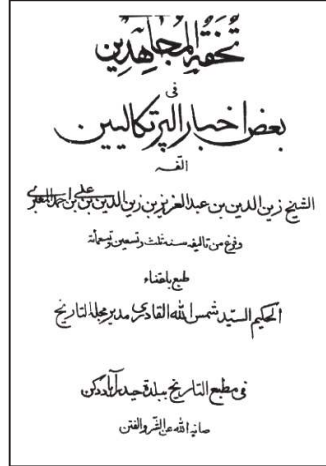 تحفة المجاهدين
فى
بعض اخبار البرتكاليين
الفه
الشيخ زين الدين بن عبد العزيز بن زين الدين بن على بن احمد المعبرى
وفرغ من تاليفه سنه ثلث وتسعين وتسعمائة
طبع باعتناء
الحكيم السيد شمس الله القادرى مدير مجلة التاريخ
فى مطبع التاريخ ببلدة حيدرآباد دكن
صانه الله عن الشر والفتن